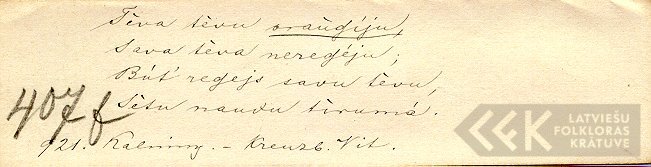 Tēva tēvu oraūdiju,
Sava tēva neredēju;
Bút' redejs savu tēvu,
Sētu naudu tirumá.
407 f
921. Kalniny. - Kreuzb. Vit.
LATVIEŠU
FOLKLORAS
KRĀTUVE